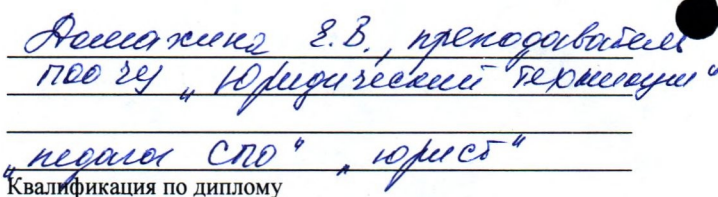 Домахина Е.В., преподаватель
ПОО ЧУ „Юридический техникум"
„педагог СПО" „юрист"
Квалификация по диплому